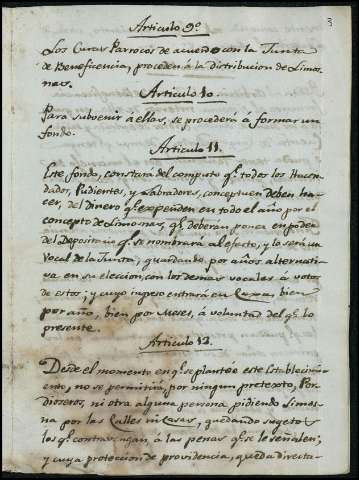 3
Articulo 9º
Los Curas Parrocos de acuerdo con la Junta
de Beneficencia, proceden á la distribucion de Limo-
nas.
Articulo 10.
Para subvenir á ellas, se procederá á formar un
fondo.
Articulo 11.
Este fondo, constará del computo q.e todos los Hacen-
dados, Pudientes, y Labradores, conceptuen deben ha-
cer, del Dinero q.e expenden en todo el año por el
concepto de Limosnas, q.e deberan poner en poder
del Depositario q.e se nombrará al efecto, y lo será un
Vocal de la Junta, guardando por años alternati-
va en su eleccion, con los demas vocales á votos
de estos; y cuyo ingreso entrará en Caxa, bien
por año, bien por Meses, á voluntad del q.e lo
presente.
Articulo 12.
Desde el momento en q.e se planteé este Establecimi-
ento, no se permitirá, por ningun pretexto, Por-
dioseros, ni otra alguna persona pidiendo Limos-
na por las Calles ni Casas, quedando sugetos
los q.e contravengan á las penas q.e se le señalen;
y cuya proteccion de providencia, queda directa-